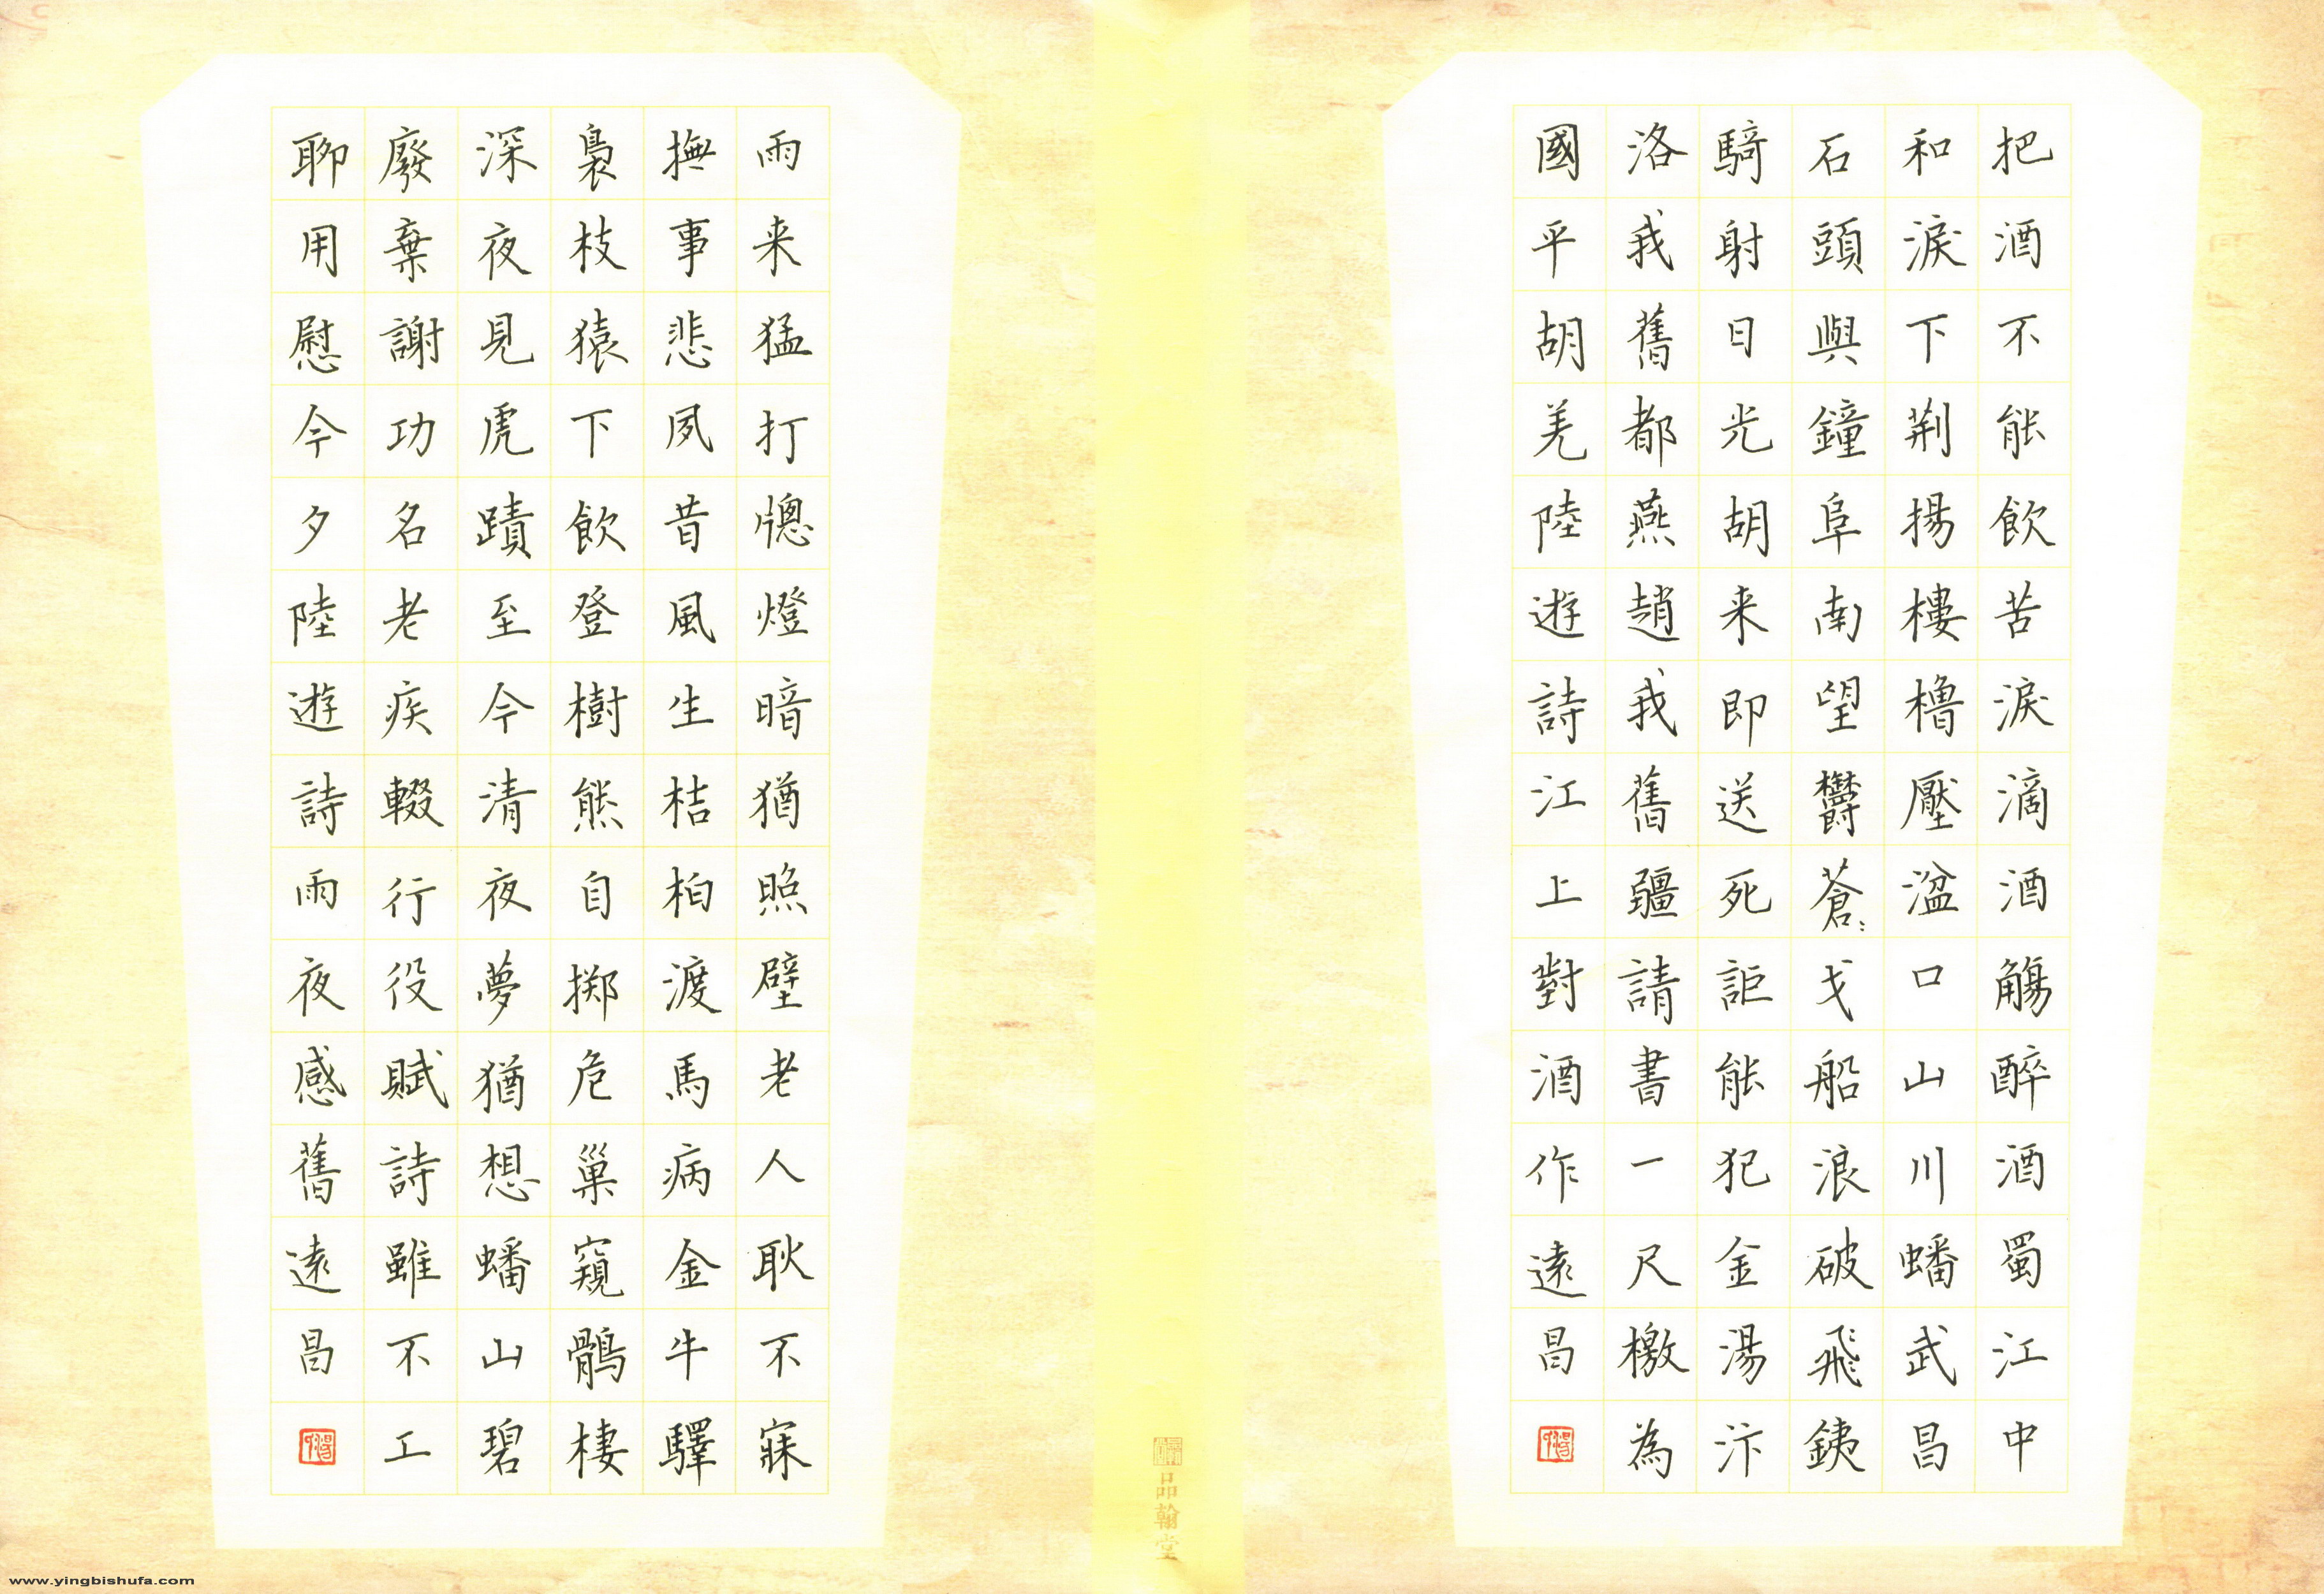 把酒不能飲苦淚滴酒觴醉酒蜀江中
和淚下荆揚樓櫓壓湓口山川蟠武昌
石頭與鐘阜南望鬱蒼〻戈船浪破飛鉄
騎射日光胡来即送死詎能犯金湯汴
洛我舊都燕趙我舊疆請書一尺檄為
國平胡羌陸遊詩江上對酒作遠昌
雨来猛打牕燈暗猶照壁老人耿不寐
撫事悲夙昔風生桔柏渡馬病金牛驛
裊枝猿下飲登樹熊自擲危巢窺鶻棲
深夜見虎蹟至今清夜夢猶想蟠山碧
廢棄謝功名老疾輟行役賦詩雖不工
聊用慰今夕陸遊詩雨夜感舊遠昌
品翰堂
www.yingbishufa.com